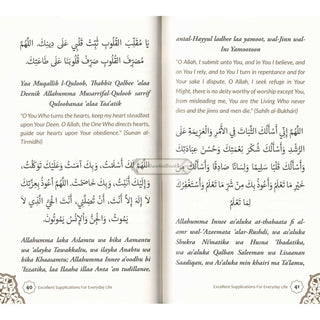 يَا مُقَلِّبَ القُلُوبِ ثَبِّتْ قَلْبِي عَلَى دِينِكَ. اللَّهُمَّ
مُصَرِّفَ القُلُوبِ صَرِّفْ قُلُوبَنَا عَلَى طَاعَتِكَ.
Yaa Muqallib l-Quloob, Thabbit Qalbee 'alaa
Deenik Allahumma Musarrifal-Quloob sarrif
Quloobanaa 'alaa Taa'atik
"O You who turns the hearts, keep my heart steadfast
upon Your Deen. O Allah, the One Who directs hearts,
guide our hearts upon Your obedience." (Sunan al-
Tirmidhi)
اللَّهُمَّ لَكَ أَسْلَمْتُ، وَبِكَ آمَنْتُ وَعَلَيْكَ تَوَكَّلْتُ،
وَإِلَيْكَ أَنَبْتُ، وَبِكَ خَاصَمْتُ. اللَّهُمَّ أَعُوذُ بِعِزَّتِكَ
لَا إِلَهَ إِلَّا أَنْتَ، أَنْ تُضِلَّنِي، أَنْتَ الْحَيُّ الَّذِي لَا
يَمُوتُ، وَالْجِنُّ وَالْإِنْسُ يَمُوتُونَ.
Allahumma laka Aslamtu wa bika Aamantu
wa 'alayka Tawakkaltu, wa ilayka Anabtu wa
bika Khaasamtu; Allahumma Innee a'oodhu bi
'Izzatika, laa Ilaaha illaa Anta an tudillanee,
40
Excellent Supplications For Everyday Life
antal-Hayyul ladhee laa yamoot, wal-Jinn wal-
Ins Yamootoon
"O Allah, I submit unto You, and in You I believe, and
on You I rely, and to You I turn in repentance and for
Your sake I dispute. O Allah, I seek refuge in Your
Might, there is no deity worthy of worship except You,
from misleading me, You are the Living Who never
dies and the jinns and men die." (Sahih al-Bukhāri)
اللَّهُمَّ إِنِّي أَسْأَلُكَ الثَّبَاتَ فِي الْأَمْرِ وَالْعَزِيمَةَ عَلَى
الرُّشْدِ وَأَسْأَلُكَ شُكْرَ نِعْمَتِكَ وَحُسْنَ عِبَادَتِكَ
وَأَسْأَلُكَ قَلْبًا سَلِيمًا وَلِسَانًا صَادِقًا وَأَسْأَلُكَ مِنْ
خَيْرِ مَا تَعْلَمُ وَأَعُوذُ بِكَ مِنْ شَرِّ مَا تَعْلَمُ وَأَسْتَغْفِرُكَ
لِمَا تَعْلَمُ.
Allahumma Innee as'aluka at-thabaata fi al-
amr wal-'Azeemata 'alar-Rushdi, wa as'aluka
Shukra Ni'matika wa Husna 'Ibadatika,
wa as'aluka Qalban Saleeman wa Lisanan
Saadiqan, wa As'aluka min khairi ma Ta'lamu,
Excellent Supplications For Everyday Life
41